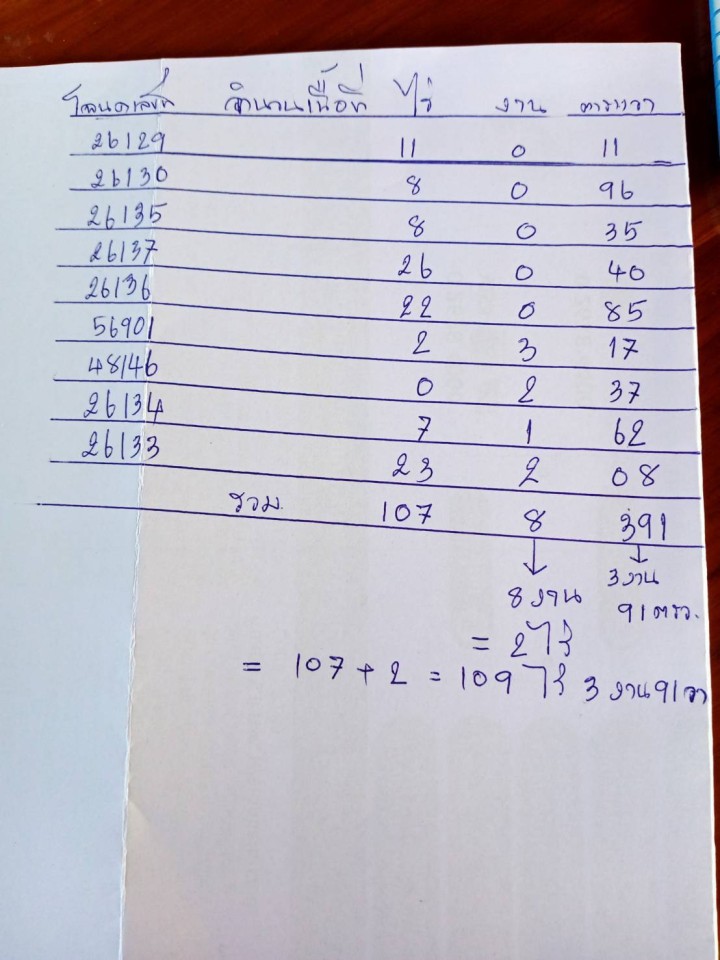 โฉนดเลขที่ จำนวนเนื้อที่ ไร่ งาน ตารางวา
26129 11 0 11
26130 8 0 96
26135 8 0 35
26137 26 0 40
26136 22 0 85
56901 2 3 17
48146 0 2 37
26134 7 1 62
26133 23 2 08
รวม. 107 8 391
8 งาน 3 งาน
91 ตรว.
= 2 ไร่
= 107 + 2 = 109 ไร่ 3 งาน 91 วา